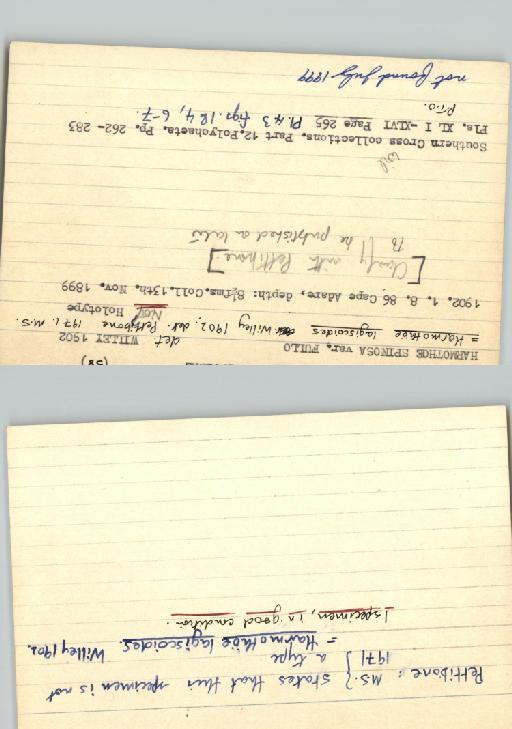 (58)
HARMOTHOE SPINOSA var. FULLO WILLEY 1902
= Harmothöe lagiscoides Willey 1902, det. Pettibone 1971. M.S.
Not Holotype
1902. 1. 8. 86 Cape Adare, depth: 8½fms.Coll.13th. Nov. 1899
[Clarify with Pettibone]
To be published at later
Southern Cross collections. Part 12.Polychaeta. Pp. 262- 283
Pls. XL I -XLVI Page 265 Pl. 43 figs. 1&4, 6-7.
P.T.O.
not found July 1999
Pettibone: M.S. 1971 } states that this specimen is not
a type
= Harmothöe lagiscoides. Willey 1902.
1 specimen, in good condition.